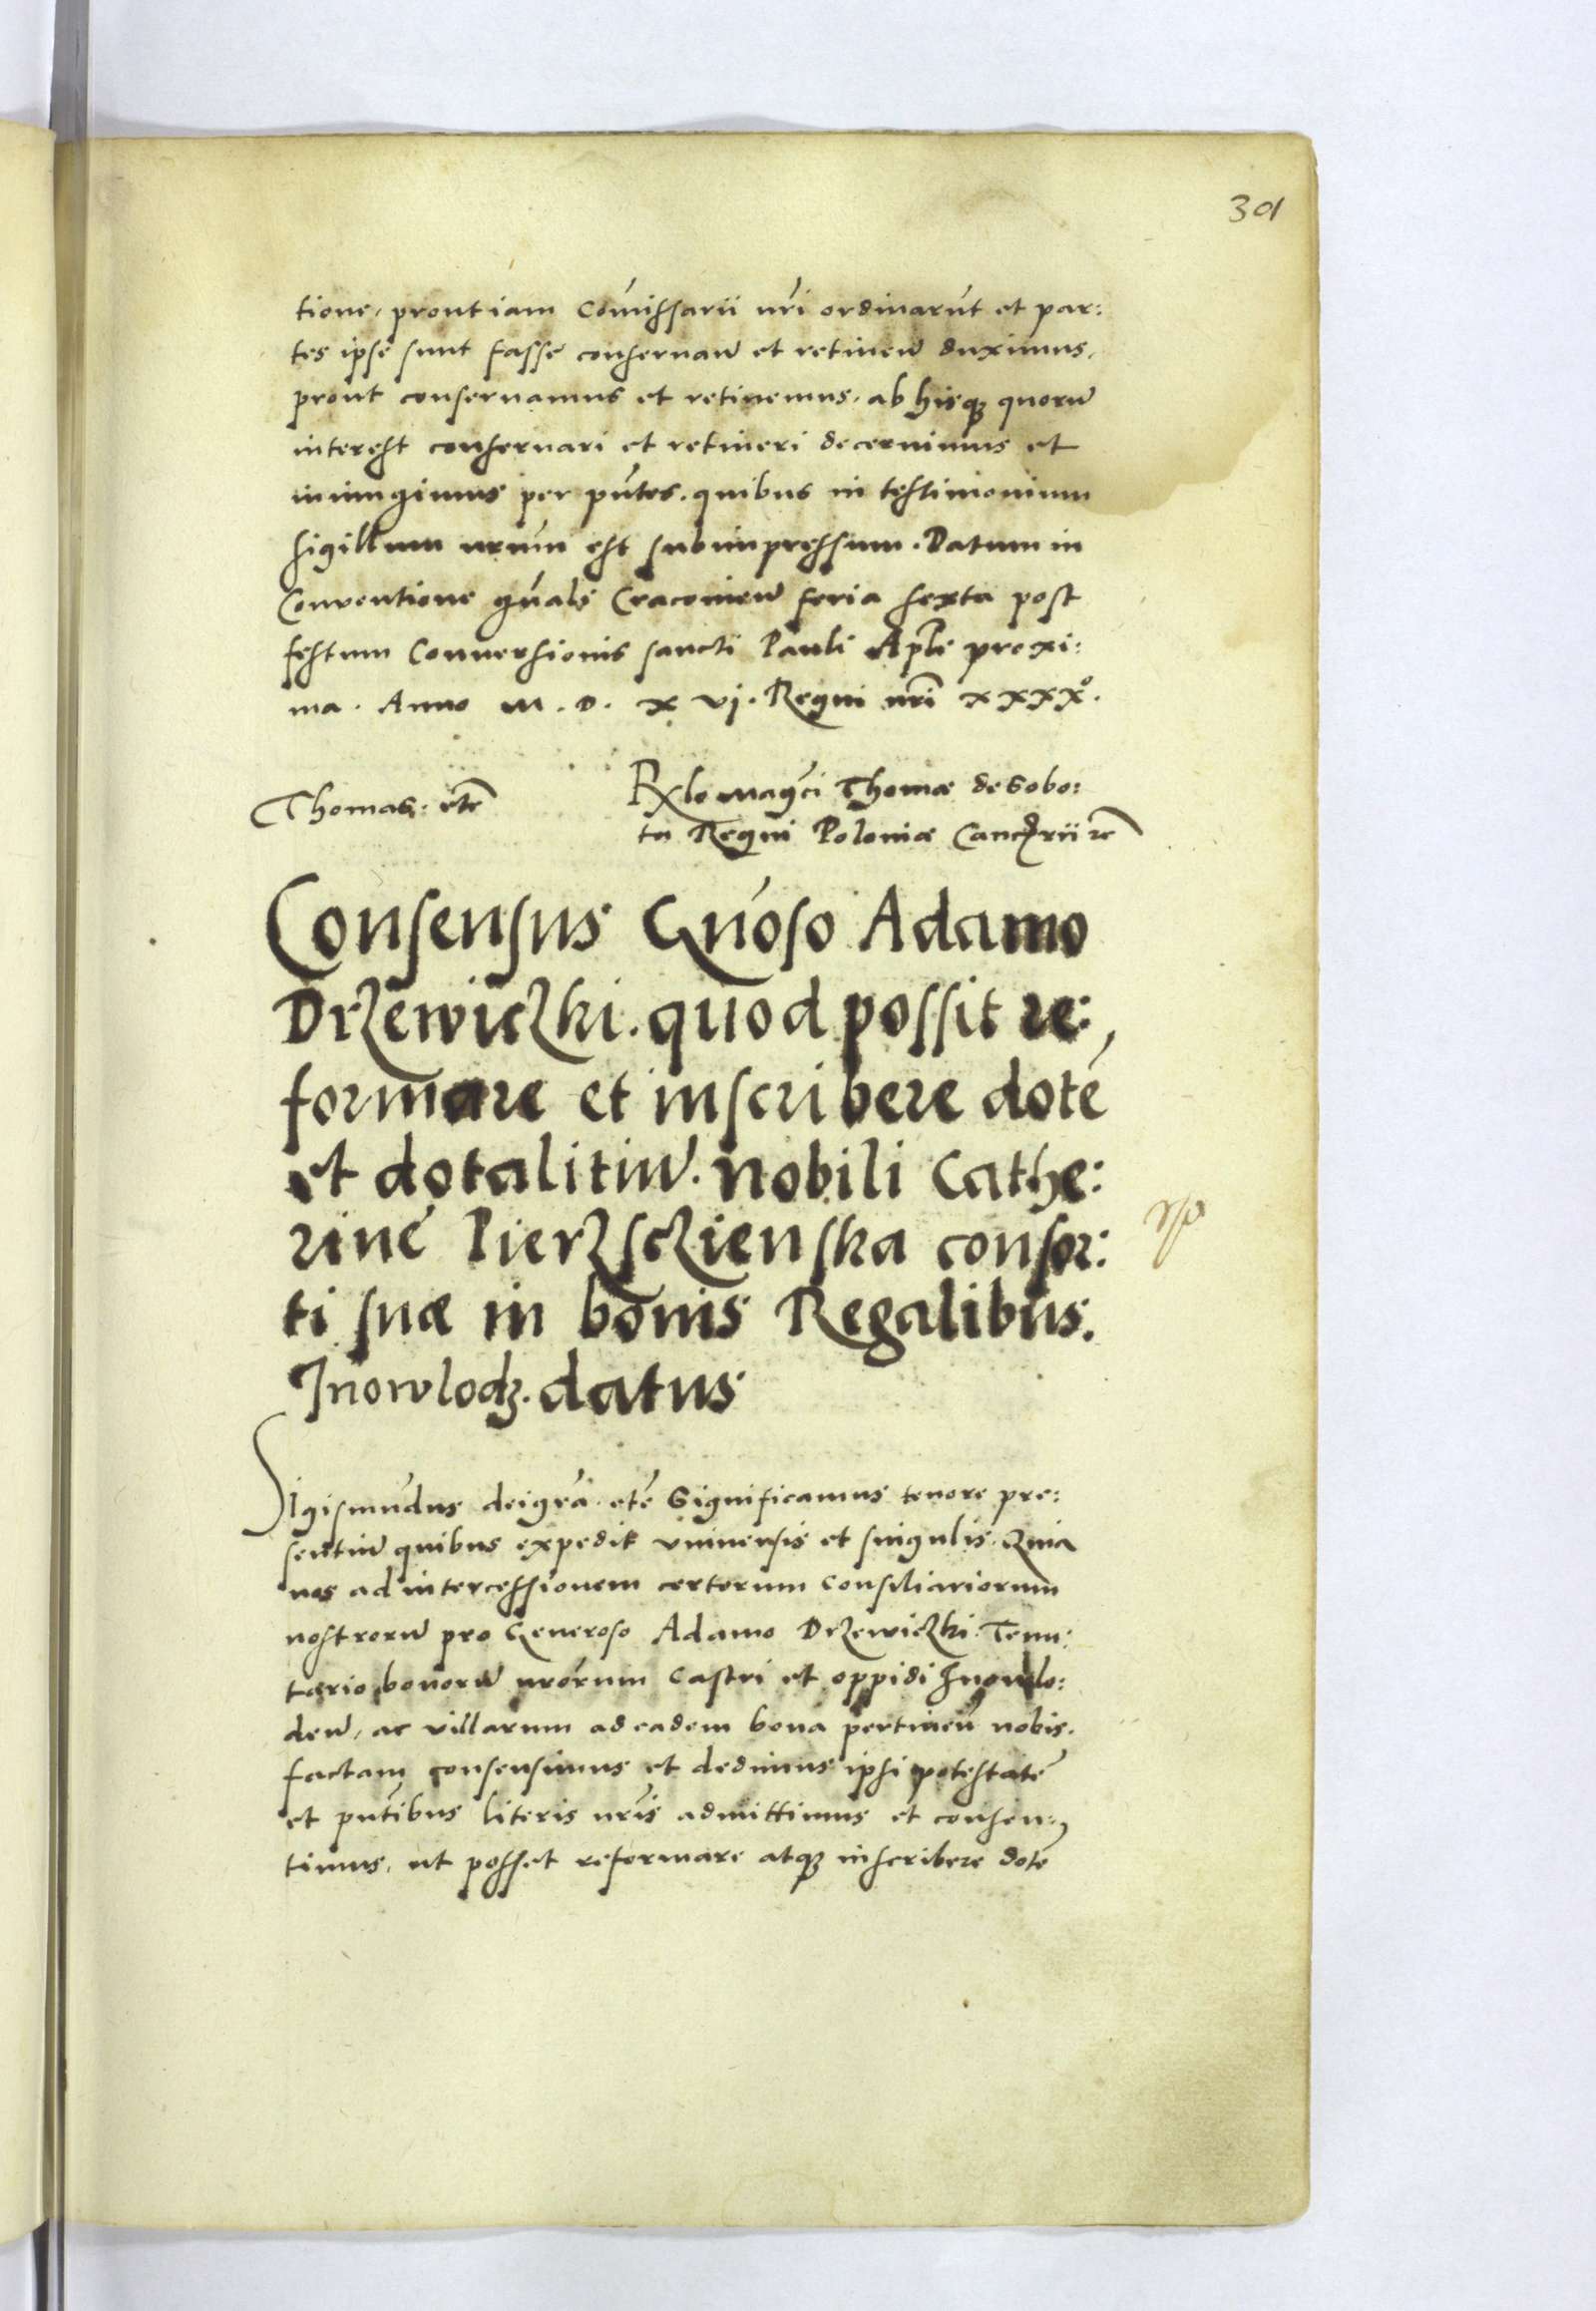 301
tione, prout iam Cōmissarii nr̃i ordinarūt et par:
tes ipsę sunt fassę conseruan̄ et retinen̄ duximus,
prout conseruamus et retinemus. ab hisqꝫ quorū
interest conseruari et retineri decernimus et
iniungimus per pn̄tes. quibus in testimonium
sigillum nr̄um est subimpressum. Datum in
Conventione gn̄ali Cracovien̄ feria sexta post
festum Conversionis sancti Pauli Apl̄i proxi:
ma. Anno M. D. x vj. Regni nr̃i xxxxº.
Thomas: etc̄
Rx̄lo mag̃ci Thomæ de Sobo:
ta Regni Poloniæ Canc̄rii ꝛc̄
Consensus Gn̄oso Adamo
Drzewiczki. quod possit re:
formare et inscribere dotē
et dotalitiū. nobili Cathe:
rinę Pierzsczienska consor:
ti suæ in bonis Regalibus.
Inowlodz. datus
Sigismūdus dei gr̃a. etc̄ Significamus tenore pre:
sentiū quibus expedit vniuersis et singulis. Quia
nos ad intercessionem certorum Consiliariorum
nostrorū pro Generoso Adamo Drzewiczki. Tenu:
tario bonorū nr̃orum Castri et oppidi Inowlo:
den̄, ac villarum ad eadem bona pertinen̄ nobis.
factam consensimus et dedimus ipsi potestatē
et pn̄tibus literis nr̃is admittimus et consen:
timus, ut posset reformare atqꝫ inscribere dotē